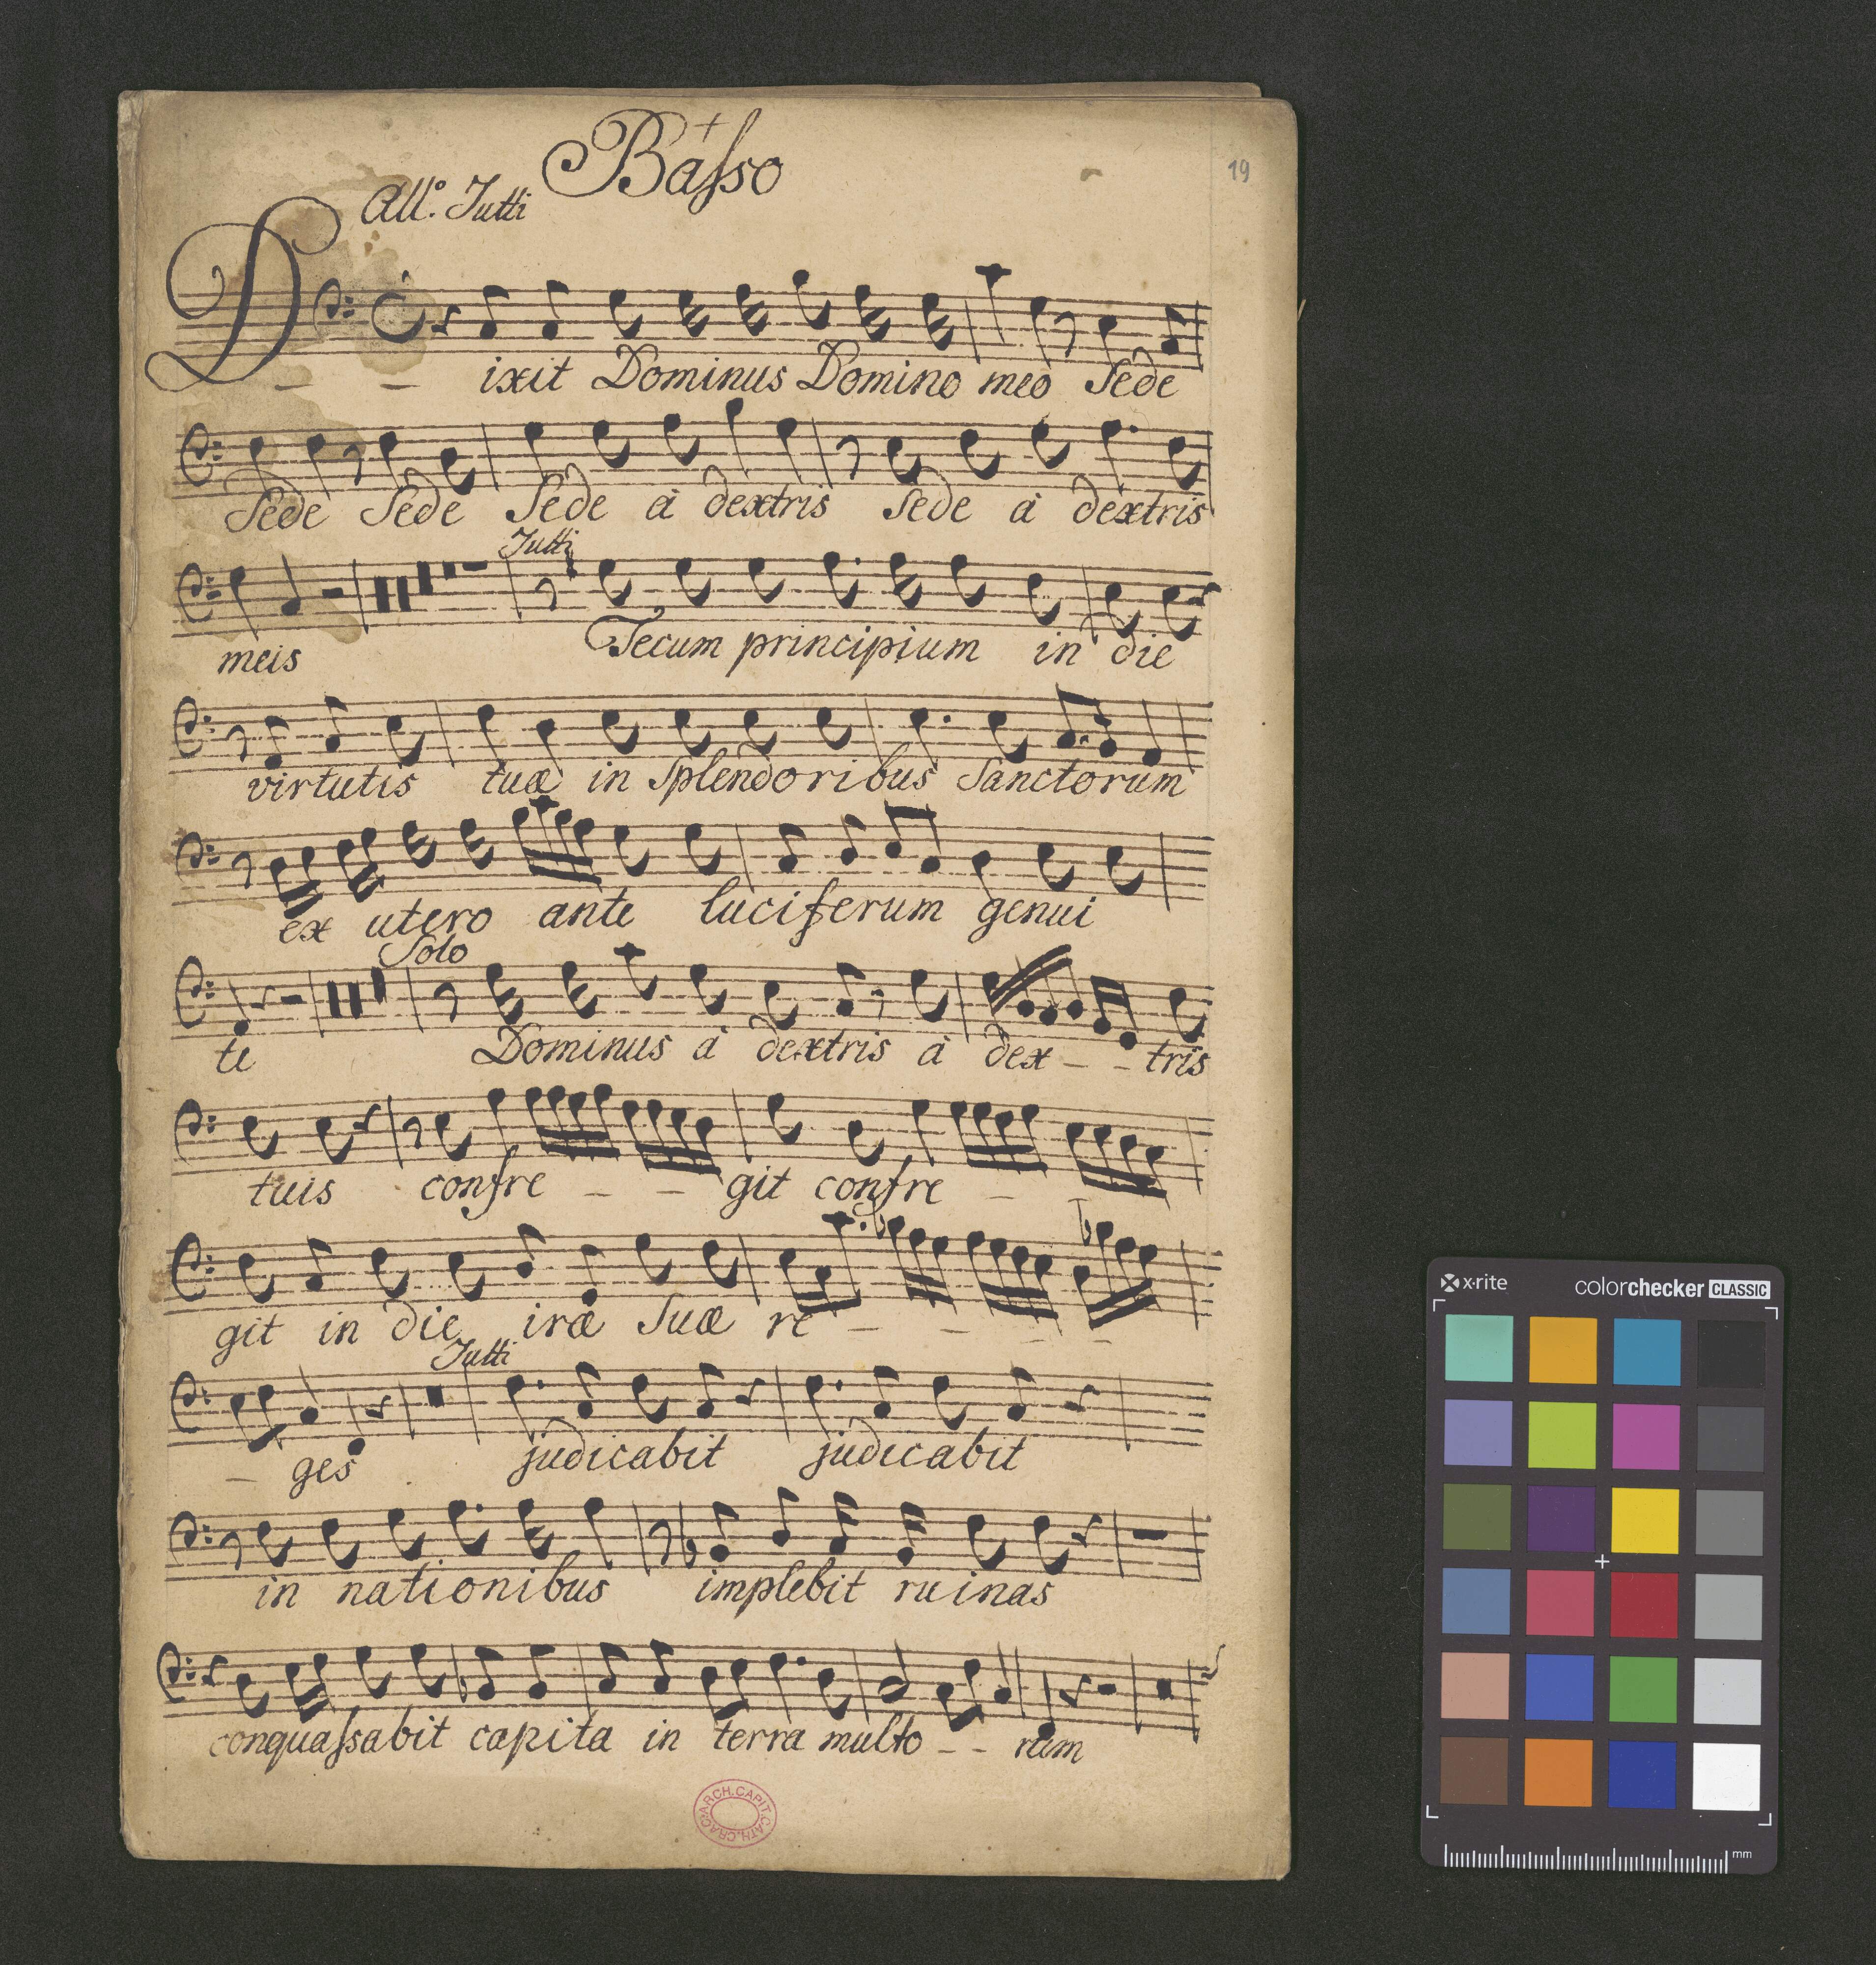 Baſso
19
All.º Tutti
Dixit Dominus Domino meo Sede
Sede Sede Sede à dextris Sede à dextris
Tutti
meis Tecum principium in die
virtutis tuæ in Splendoribus Sanctorum
ex utero ante luciferum genui
Solo
te Dominus à dextris à dex - - tris
tuis confre - - git confre -
git in die iræ Suæ re - - - -
Tutti
- ges judicabit judicabit
in nationibus implebit ruinas
conquaſsabit capita in terra multo - - rum
ARCH. CAPIT. CATH. CRAC.
x·rite colorchecker CLASSIC
mm